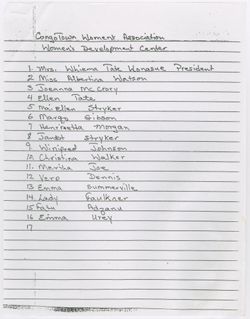 CongoTown Women's Association
Women's Development Center
1 Mrs. Whiema Tate Wonasue President
2 Miss Albertina Watson
3 Joeanna Mc Crory
4 Ellen Tate
5 Mai Ellen Stryker
6 Margy Gibson
7 Henrieetta Morgan
8 Janet Stryker
9 Winifred Johnson
10 Christina Walker
11 Martha Joe
12 Vero Dennis
13 Emma Summerville
14 Lady Faulkner
15 Fatu
16 Emma Urey
17